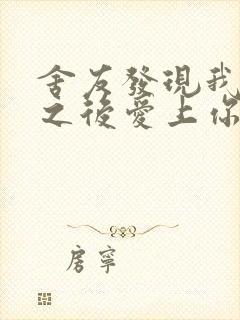 舍友發現我
之後愛上你
房寧